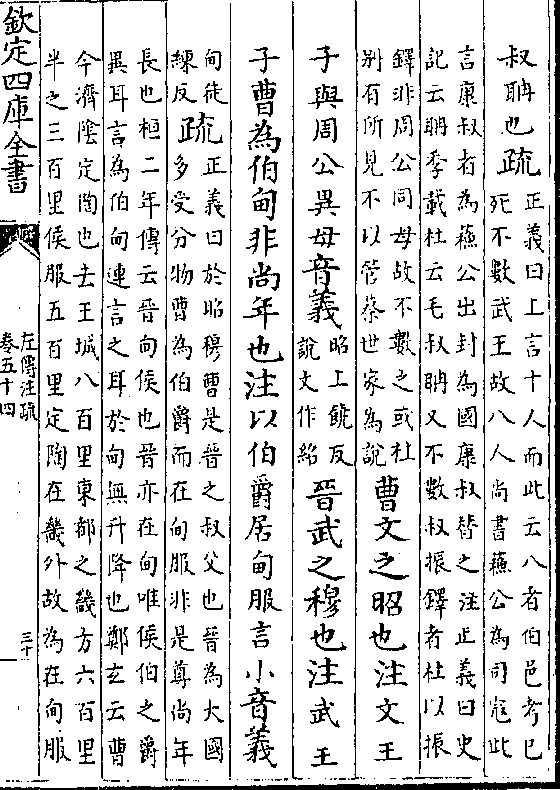 叔聃也疏正義曰上言十人而此云八者伯邑考已
死不數武王故八人尚書蘓公為司寇此
言康叔者為蘓公出封為國康叔替之注正義曰史
記云聃季載杜云毛叔聃又不數叔振鐸者杜以振
鐸非周公同母故不數之或杜
别有所見不以管蔡世家為説
曹文之昭也注文王
子與周公異母音義昭上饒反
説文作㲈
晉武之穆也注武王
子曹為伯甸非尚年也注以伯爵居甸服言小音義
甸徒
練反
疏正義曰於昭穆曹是晉之叔父也晉為大國
多受分物曹為伯爵而在甸服非是尊尚年
長也桓二年傳云晉甸侯也晉亦在甸唯侯伯之爵
異耳言為伯甸連言之耳於甸無升降也鄭玄云曹
今濟隂定陶也去王城八百里東都之畿方六百里
半之三百里侯服五百里定陶在畿外故為在甸服
欽定四庫全書
左傳注疏
卷五十四
三十